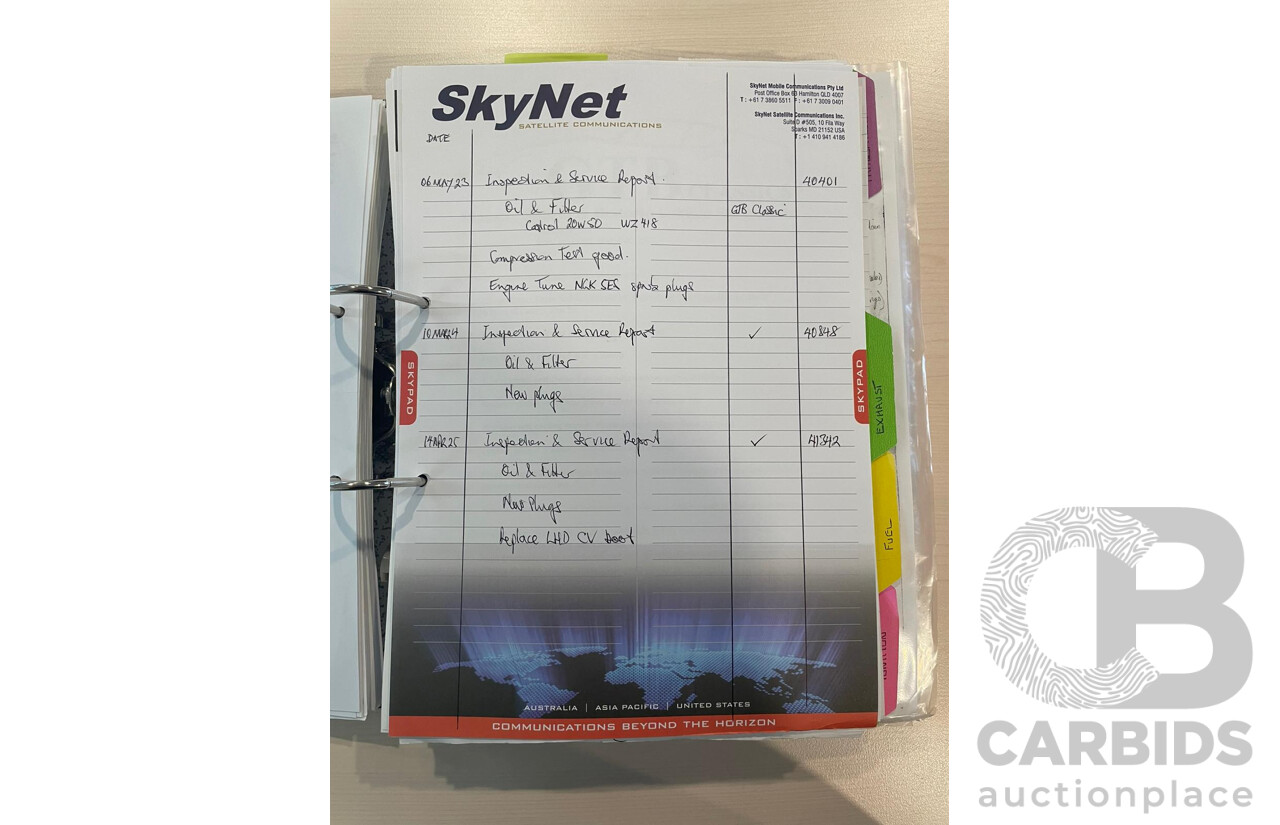 SkyNet
SATELLITE COMMUNICATIONS
SkyNet Mobile Communications Pty Ltd
Post Office Box 60 Hamilton QLD 4007
T : +61 7 3860 5511 F : +61 7 3009 0401
SkyNet Satellite Communications Inc.
Suite D #505, 10 Fila Way
Sparks MD 21152 USA
T : +1 410 941 4186
DATE
06 MAY 23 Inspection & Service Report. 40401
Oil & Filter GTB Classic
20W50 WZ418
Compression Test good.
Engine Tune NGK 5ES spark plugs
10 MAR 24 Inspection & Service Report ✓ 40848
Oil & Filter
New plugs
SKYPAD
SKYPAD
EXHAUST
14 APR 25 Inspection & Service Report ✓ 41342
Oil & Filter
New Plugs
Replace LHD CV boot
FUEL
AUSTRALIA | ASIA PACIFIC | UNITED STATES
COMMUNICATIONS BEYOND THE HORIZON
CB
CARBIDS
auctionplace